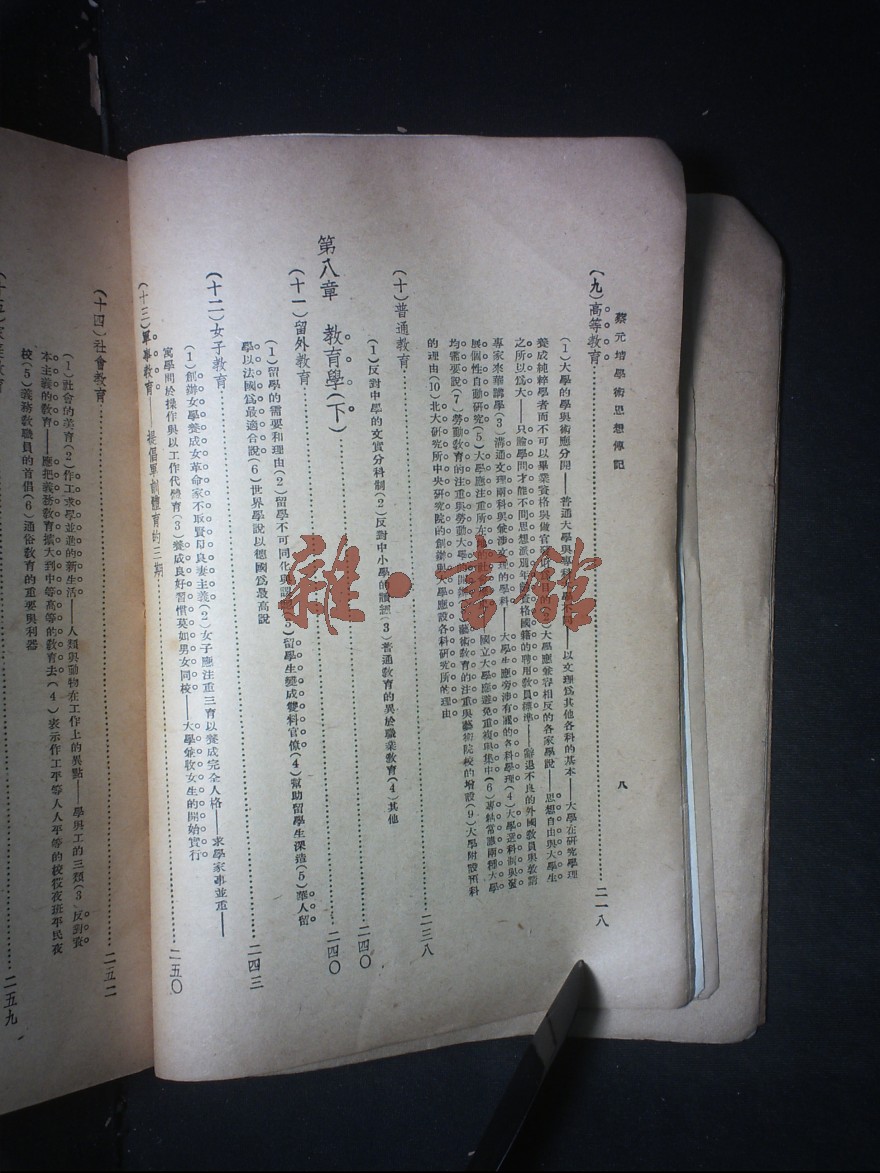 蔡元培學術思想傳記
八
(九)高等教育……二一八
(1)大學的學與術應分開——普通大學與專科大學 以文理爲其他各科的基本——大學在研究學理
養成純粹學者而不可以畢業資格與做官 大學應兼容相反的各家學說——思想自由與大學生
之所以爲大——只論學問才能不問思想派別年齡資格國籍的聘用教員標準——辭退不良的外國教員與敦請
專家來華講學(3)溝通文理兩科與兼涉文理的學科——大學生應旁涉有關的各科學理(4)大學選科制與發
展個性自動研究(5)大學應注重所在 國立大學應避免重複與集中(6)專 兩種大學
均需要說(7)勞動教育的注重與勞動大學 藝術教育的注重與藝術院校的增設(9)大學附設預科
的理由(10)北大研究所中央研究院的創辦與大學應設各科研究所的理由
(十)普通教育……二三八
(1)反對中學的文實分科制(2)反對中小學的讀經(3)普通教育的異於職業教育(4)其他
第八章 教育學(下)……二四〇
(十一)留外教育……二四〇
(1)留學的需要和理由(2)留學不可同化與 留學生變成雙料官僚(4)幫助留學生深造(5)華人留
學以法國爲最適合說(6)世界學說以德國爲最高說
(十二)女子教育……二四三
(1)創辦女學養成女革命家不取賢母良妻主義(2)女子應注重三育以養成完全人格——求學家事並重——
寓學問於操作與以工作代體育(3)養成良好習慣莫如男女同校——大學兼收女生的開始實行
(十三)軍事教育——提倡軍訓體育的三期……二五〇
(十四)社會教育……二五二
(1)社會的美育(2)作工求學並進的新生活——人類與動物在工作上的異點——學與工的三類(3)反對資
本主義的教育——應把義務教育擴大到中等高等的教育去(4)表示作工平等人人平等的校役夜班平民夜
校(5)義務教職員的首倡(6)通俗教育的重要與利器
(十五)家庭教育……二五九
雜·書館